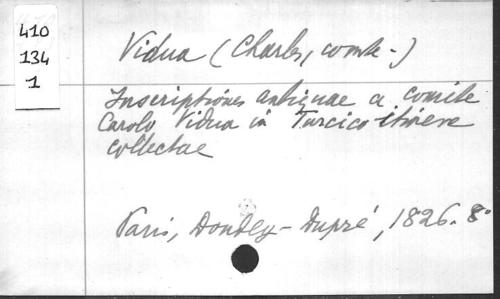 410
134
1
Vidua (Charles, comte.)
Inscriptiones antiquae a comite
Carolo Vidua in Turcico itinere
collectae
Paris, Dondey-Dupré, 1826. 8°